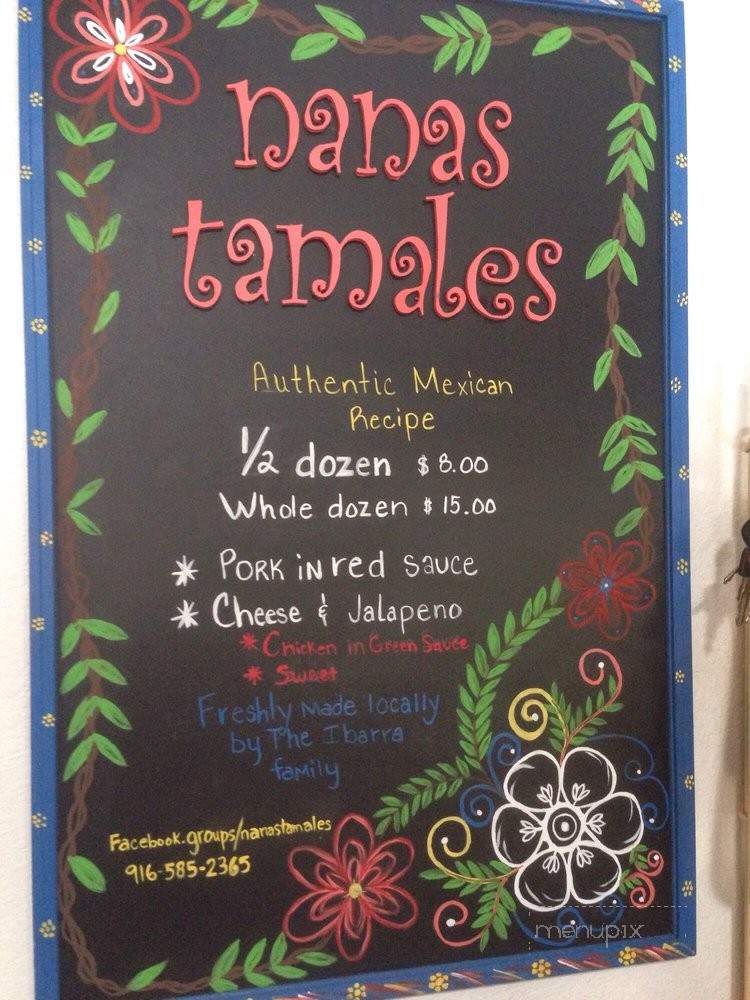 nanas
tamales
Authentic Mexican
Recipe
1/2 dozen $8.00
Whole dozen $15.00
* PORK iN red sauce
* Cheese & Jalapeno
* Chicken in Green Sauce
* Sweet
Freshly Made locally
by The Ibarra
family
Facebook.groups/nanastamales
916-585-2365
menupix